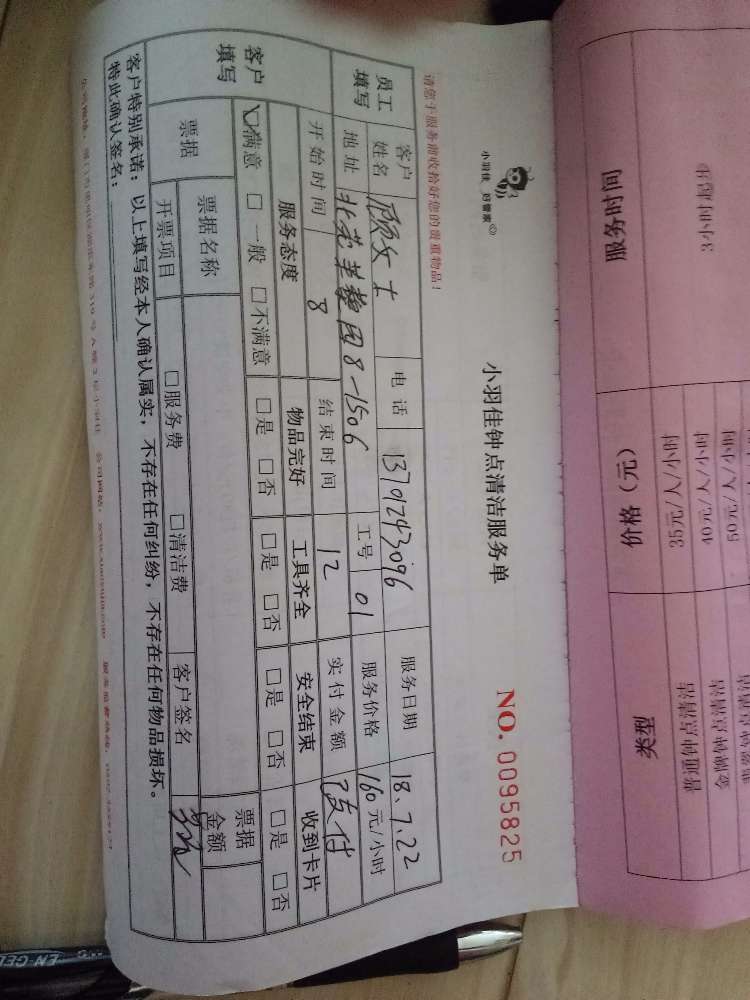 小羽佳 好管家®
小羽佳钟点清洁服务单
NO. 0095825
请您于服务前收拾好您的贵重物品！
员工填写 客户姓名 顾女士 电话 13701243096 服务日期 18.7.22
地址 8-1506 工号 01 服务价格 160元/小时
客户填写 开始时间 8 结束时间 12 实付金额 支付
服务态度 物品完好 工具齐全 安全结束 收到卡片
☑满意 □一般 □不满意 □是 □否 □是 □否 □是 □否 □是 □否
票据 票据名称 票据金额
开票项目 □服务费 □清洁费 客户签名
客户特别承诺：以上填写经本人确认属实，不存在任何纠纷，不存在任何物品损坏。
特此确认签名：
类型 价格（元） 服务时间
普通钟点清洁 35元/人/小时 3小时起步
40元/人/小时
50元/人/小时